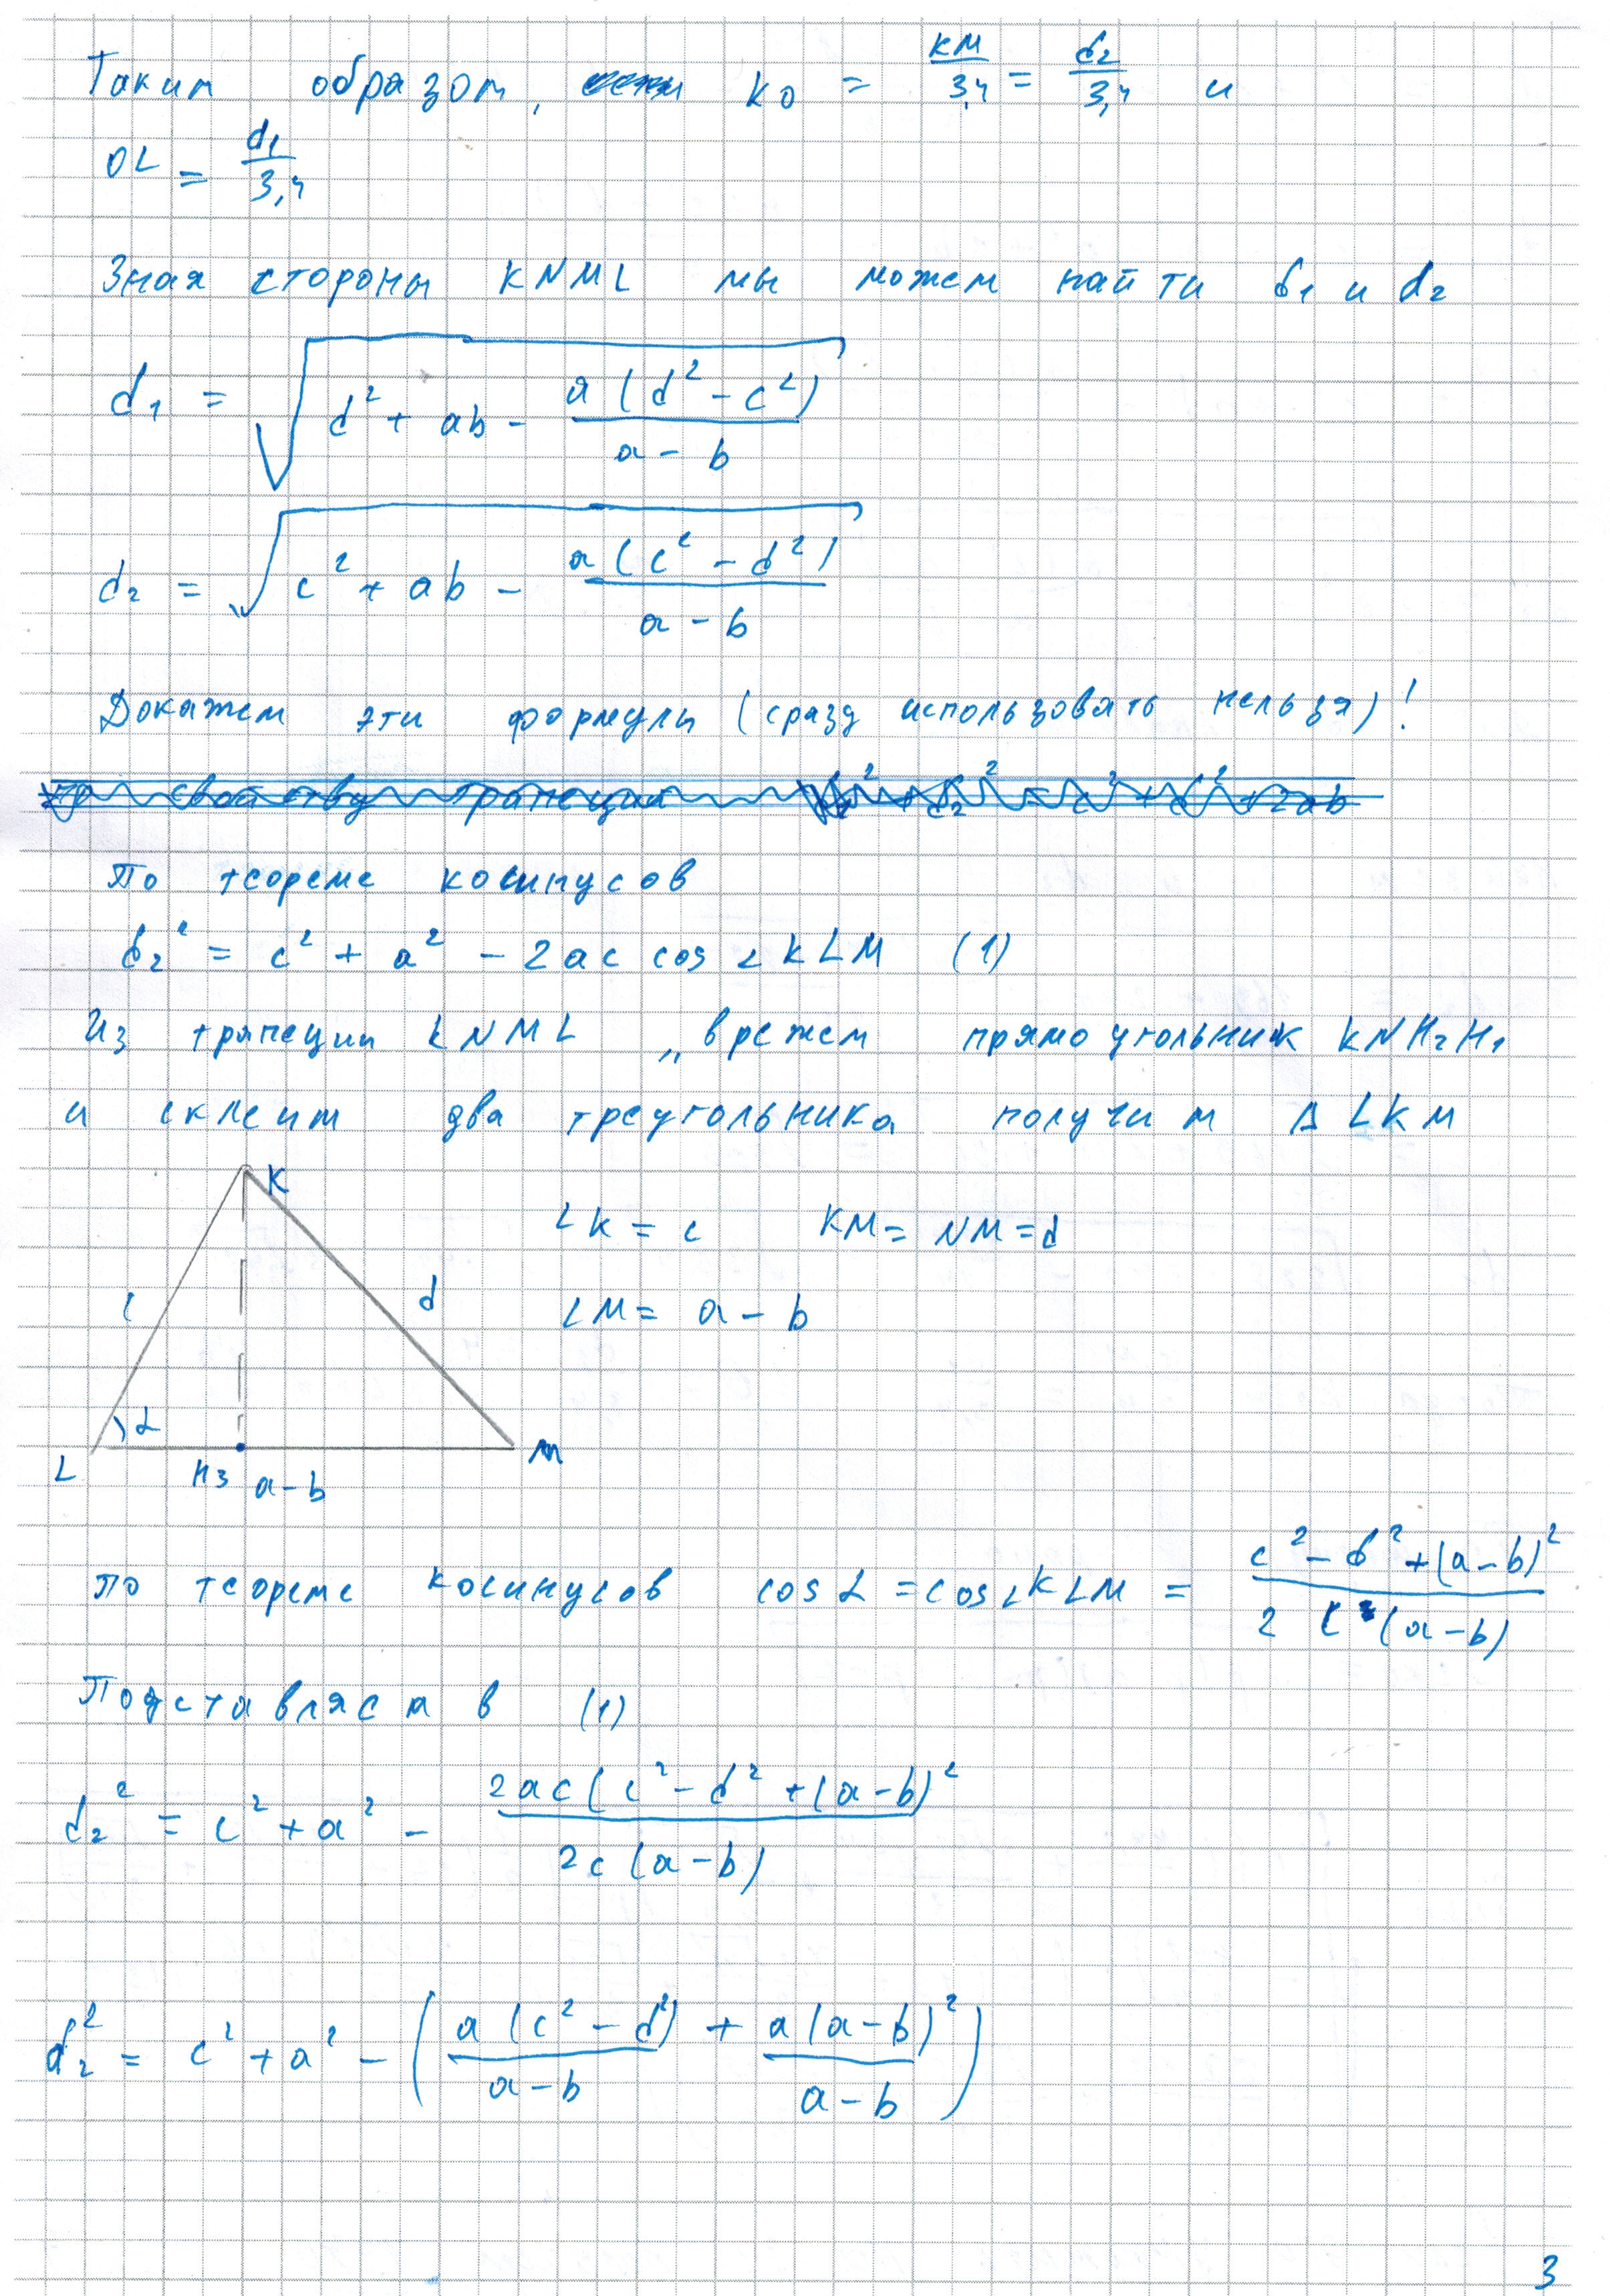 Таким образом, KO = KM/3,4 = d₂/3,4 и
OL = d₁/3,4
Зная стороны KNML мы можем найти d₁ и d₂
d₁ = √(d² + ab - a(d² - c²)/(a - b))
d₂ = √(c² + ab - a(c² - d²)/(a - b))
Докажем эти формулы (сразу использовать нельзя)!
По свойству трапеции d₂² = c² + d² + 2ab
По теореме косинусов
d₂² = c² + a² - 2ac cos ∠KLM (1)
Из трапеции KNML „врежем прямоугольник KNH₂H₁
и склеим два треугольника получим Δ LKM
K
LK = c KM = NM = d
c d
LM = a - b
α
L H₃ a-b M
По теореме косинусов cos α = cos ∠KLM = (c² - d² + (a-b)²)/(2c(a-b))
Подставляем в (1)
d₂² = c² + a² - 2ac(c² - d² + (a-b)²/2c(a-b)
d₂² = c² + a² - (a(c² - d²)/(a-b) + a(a-b)²/(a-b))
3